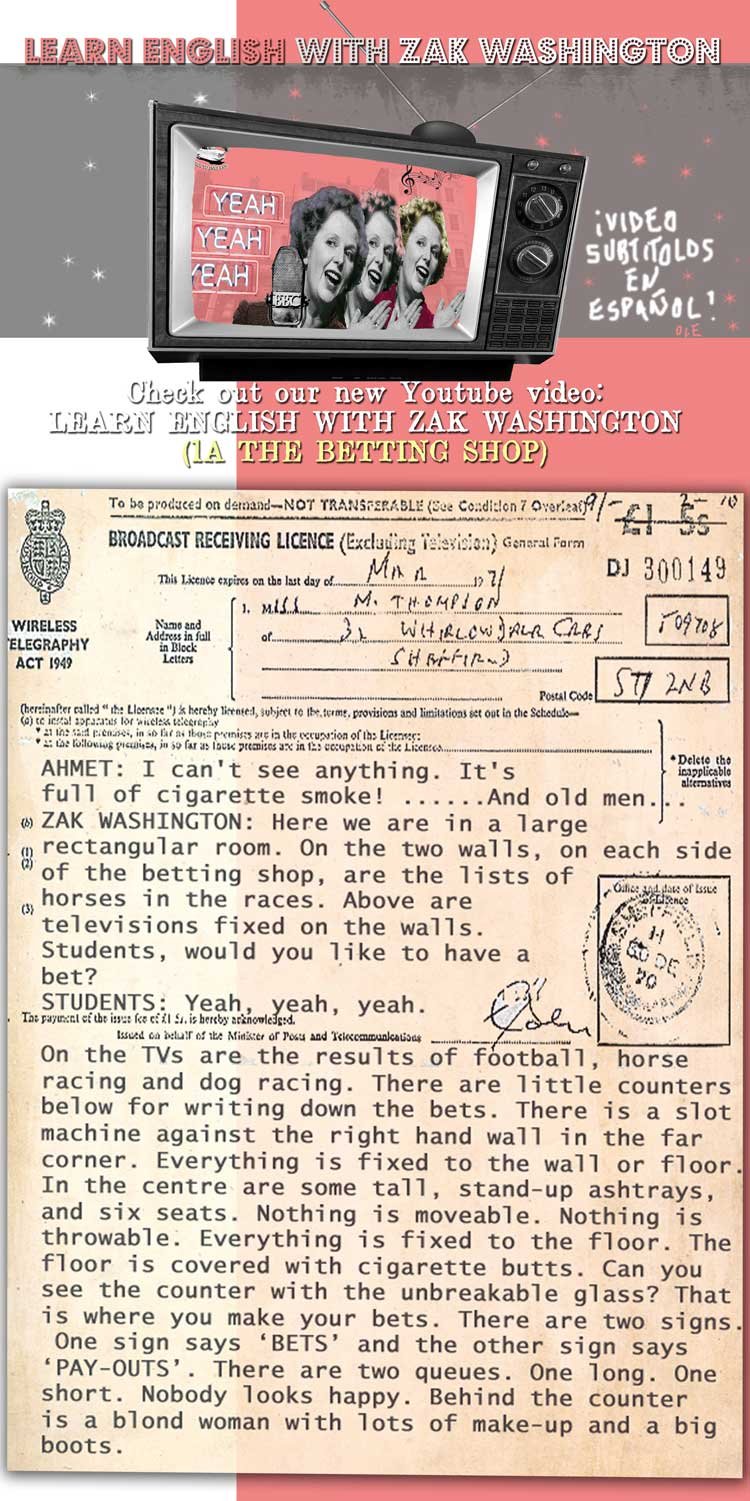 LEARN ENGLISH WITH ZAK WASHINGTON
YEAH
YEAH
YEAH
BBC
¡VIDEO
SUBTITOLDS
EN
ESPAÑOL!
OLE
Check out our new Youtube video:
LEARN ENGLISH WITH ZAK WASHINGTON
(1A THE BETTING SHOP)
To be produced on demand—NOT TRANSFERABLE (See Condition 7 Overleaf)
9/-
£1 5s
BROADCAST RECEIVING LICENCE (Excluding Television) General Form
This Licence expires on the last day of MAR 1971
DJ 300149
WIRELESS
TELEGRAPHY
ACT 1949
Name and
Address in full
in Block
Letters
1. MISS M. THOMPSON
of 32
Postal Code
(hereinafter called "the Licensee") is hereby licensed, subject to the terms, provisions and limitations set out in the Schedule—
(a) to instal apparatus for wireless telegraphy
* at the said premises, in so far as those premises are in the occupation of the Licensee:
* at the following premises, in so far as those premises are in the occupation of the Licensee
* Delete the
inapplicable
alternatives
AHMET: I can't see anything. It's
full of cigarette smoke! ......And old men...
(b) ZAK WASHINGTON: Here we are in a large
(1) rectangular room. On the two walls, on each side
(2) of the betting shop, are the lists of
(3) horses in the races. Above are
televisions fixed on the walls.
Students, would you like to have a
bet?
STUDENTS: Yeah, yeah, yeah.
Office and date of Issue
of Licence
The payment of the issue fee of £1 5s. is hereby acknowledged.
Issued on behalf of the Minister of Posts and Telecommunications
On the TVs are the results of football, horse
racing and dog racing. There are little counters
below for writing down the bets. There is a slot
machine against the right hand wall in the far
corner. Everything is fixed to the wall or floor.
In the centre are some tall, stand-up ashtrays,
and six seats. Nothing is moveable. Nothing is
throwable. Everything is fixed to the floor. The
floor is covered with cigarette butts. Can you
see the counter with the unbreakable glass? That
is where you make your bets. There are two signs.
One sign says ‘BETS’ and the other sign says
‘PAY-OUTS’. There are two queues. One long. One
short. Nobody looks happy. Behind the counter
is a blond woman with lots of make-up and a big
boots.